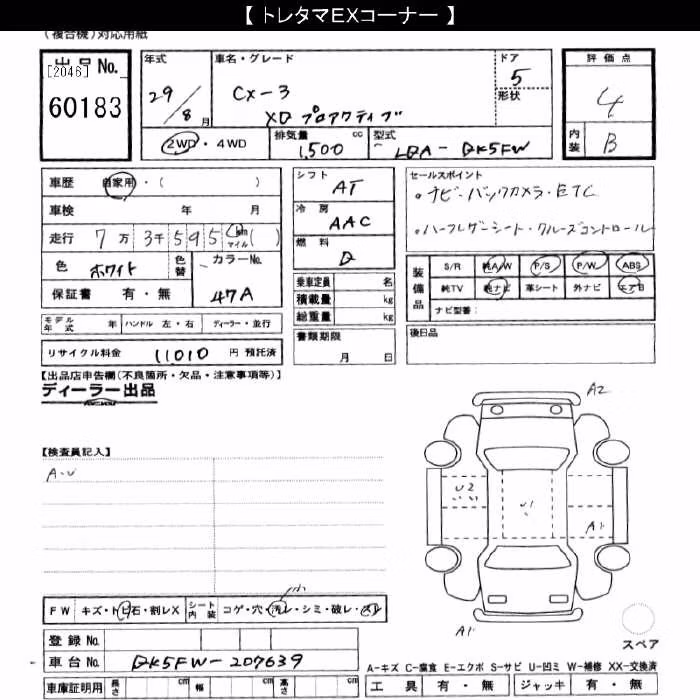 【 トレタマEXコーナー 】
(複合機)対応用紙
出品No.
[2046]
60183
年式
29/8月
車名・グレード
CX-3
XD プロアクティブ
ドア
5
形状
2WD・4WD
排気量 cc
1,500
型式
LDA-DK5FW
評価点
4
内装
B
車歴 自家用・( )
車検 年 月
走行 7万3千595 km マイル( )
色 ホワイト
色替
カラーNo.
47A
保証書 有・無
モデル年式 年
ハンドル 左・右
ディーラー・並行
リサイクル料金 11010 円 預託済
シフト
AT
冷房
AAC
燃料
D
乗車定員 名
積載量 kg
総重量 kg
書類期限
月 日
セールスポイント
。ナビ・バックカメラ・ETC
。ハーフレザーシート・クルーズコントロール
装備品
S/R 純A/W P/S P/W ABS
純TV 純ナビ 革シート 外ナビ エアB
ナビ型番:
後日品
【出品店申告欄(不良箇所・欠品・注意事項等)】
ディーラー出品
【検査員記入】
A・U
A2
U2
U1
A1
A1
小
FW キズ・トビ石・割レX
シート内装 コゲ・穴・汚レ・シミ・破レ・スレ
登録No.
車台No. DK5FW-207639
車庫証明用 長さ cm 幅 cm 高さ cm
スペア
A-キズ C-腐食 E-エクボ S-サビ U-凹ミ W-補修 XX-交換済
工具 有・無 ジャッキ 有・無